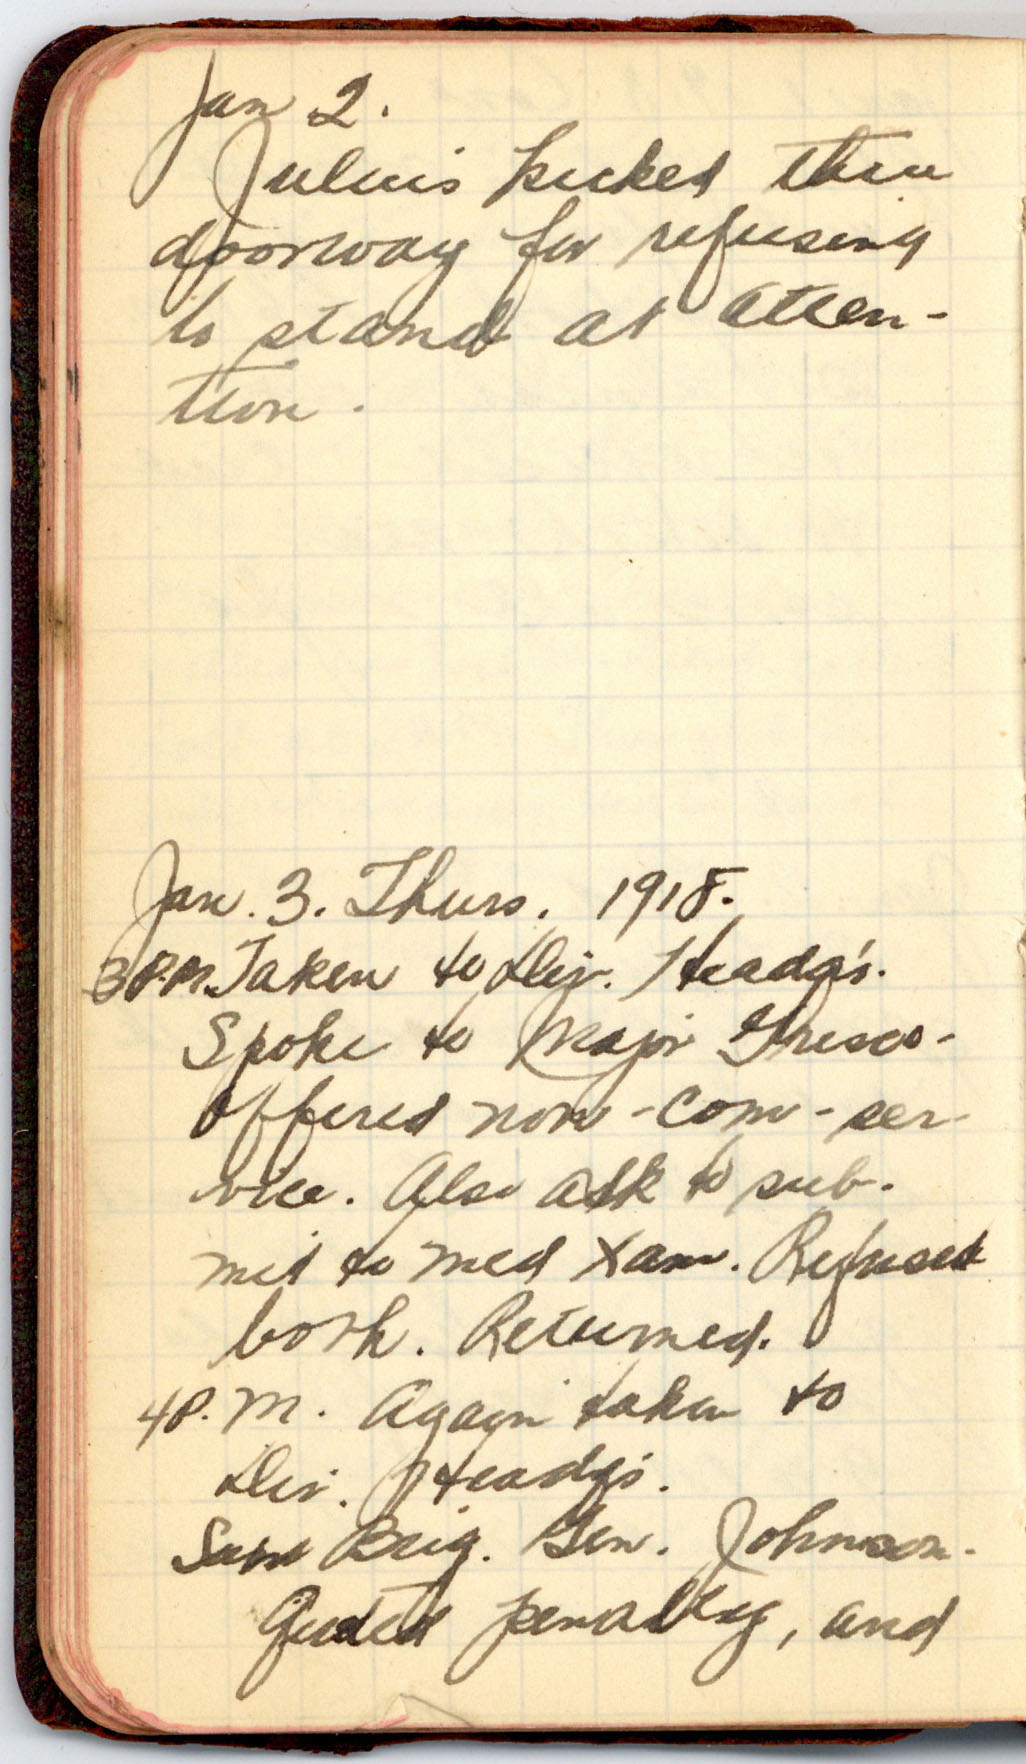 Jan 2.
Julius kicked thru
doorway for refusing
to stand at atten-
tion.
Jan. 3. Thurs. 1918.
3 P.M. Taken to Div. Headq's.
Spoke to Major
Offered non-com-ser
vice. Also ask to sub-
mit to med xam. Refused
both. Returned.
4 P.M. Again taken to
Div. Headq's.
Saw Brig. Gen. Johnson.
Quoted penalty, and